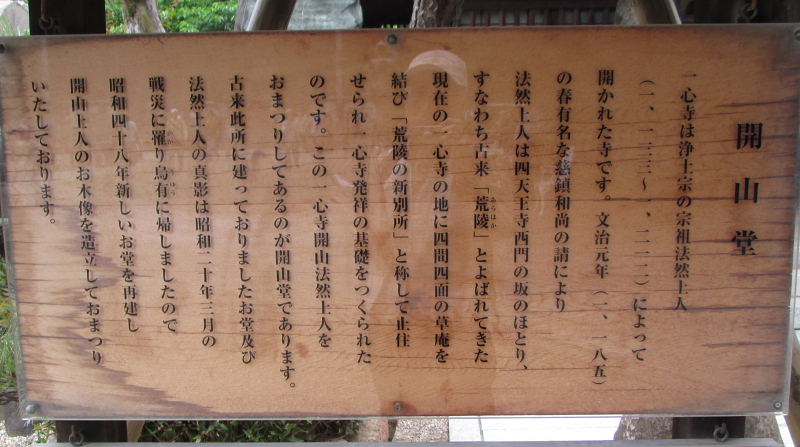 開山堂
一心寺は浄土宗の宗祖法然上人
（一、一三三～一、二一二）によって
開かれた寺です。文治元年（一、一八五）
の春有名な慈鎮和尚の請により
法然上人は四天王寺西門の坂のほとり、
すなわち古来「荒陵」とよばれてきた
あらはか
現在の一心寺の地に四間四面の草庵を
結び「荒陵の新別所」と称して止住
せられ一心寺発祥の基礎をつくられた
のです。この一心寺開山法然上人を
おまつりしてあるのが開山堂であります。
古来此所に建っておりましたお堂及び
法然上人の真影は昭和二十年三月の
戦災に罹り烏有に帰しましたので
かか うゆう
昭和四十八年新しいお堂を再建し
開山上人のお木像を造立しておまつり
いたしております。